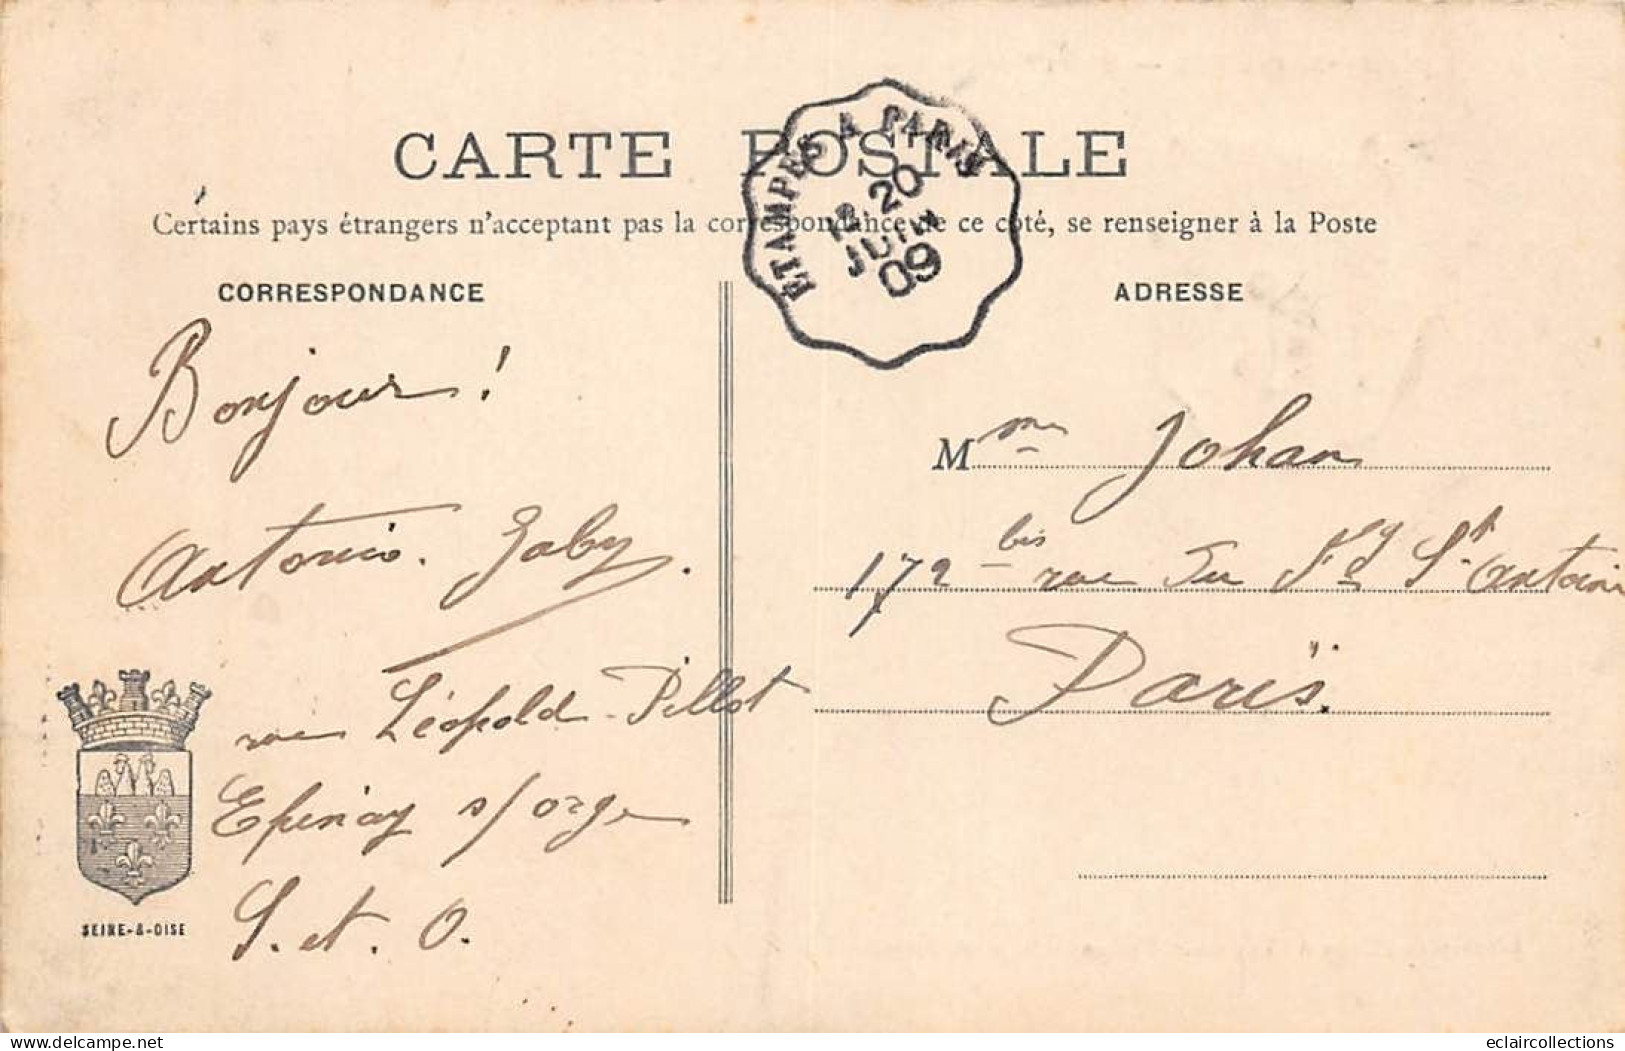 CARTE POSTALE
Certains pays étrangers n'acceptent pas la correspondance de ce côté, se renseigner à la Poste
ETAMPES A PARIS
20
12
JUIN
09
CORRESPONDANCE
Bonjour !
Antonio. Gaby.
rue Léopold-Pillot
Epinay s/orge
S. et. O.
SEINE-&-OISE
ADRESSE
Mme Johan
172 bis rue du Fg St Antoine
Paris.
delcampe.net
eclaircollections